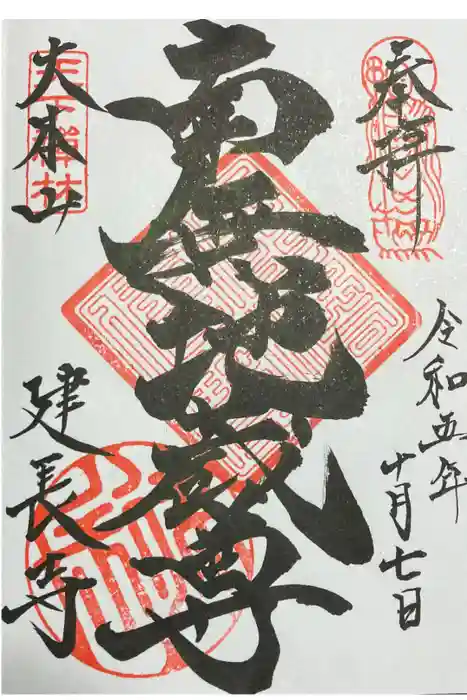 奉拝
令和五年
十月七日
南無地蔵尊
大本山
天下禅林
建長寺